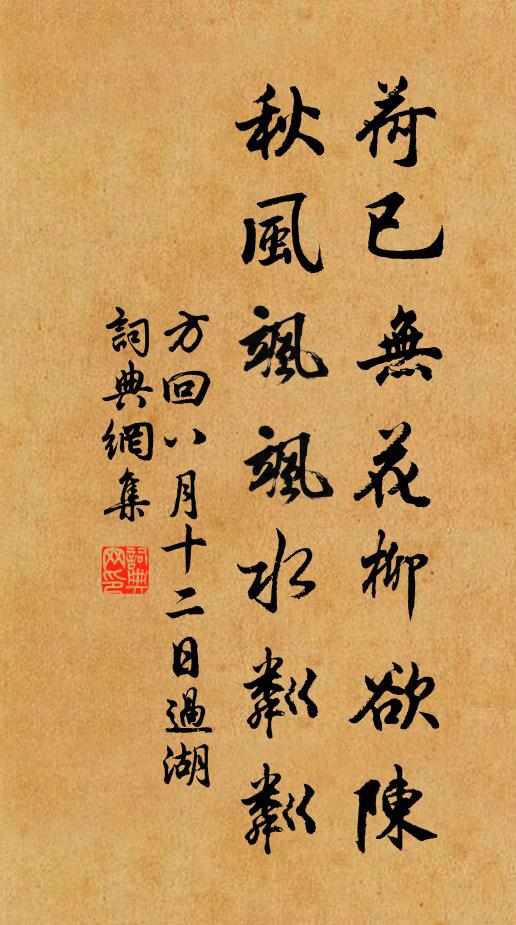 荷已無花柳欲陳
秋風颯颯水粼粼
方回八月十二日過湖
詞典網集
詞典
网印